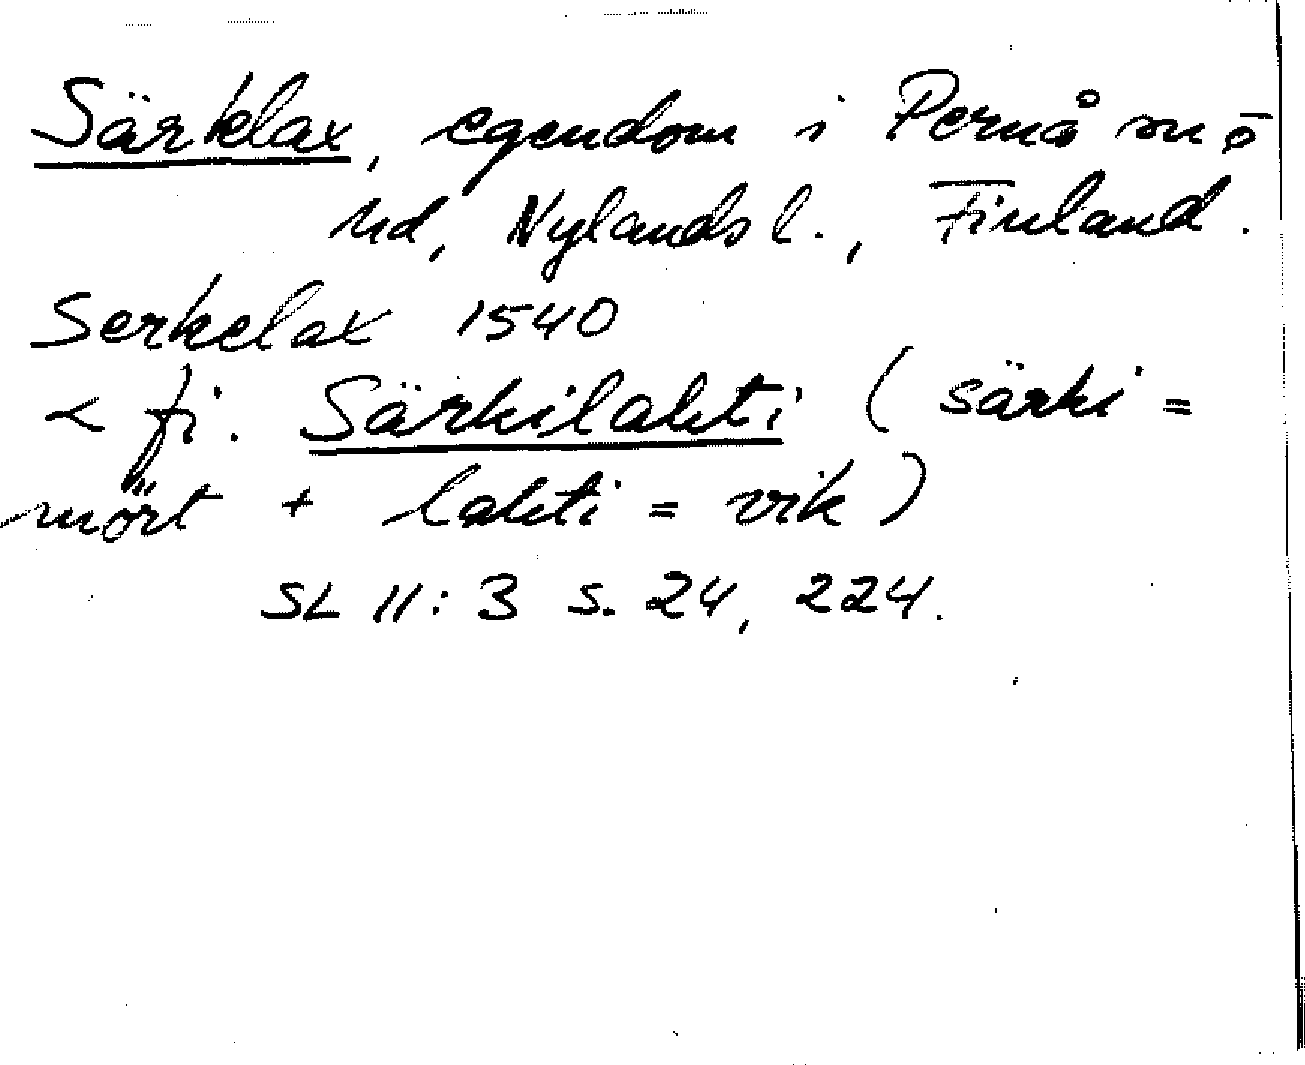 Särklax, egendom i Pernå sn ö
Nd, Nylands l., Finland.
Serkelax 1540
< fi. Särkilahti (särki =
mört + lahti = vik)
SL II: 3 s. 24, 224.